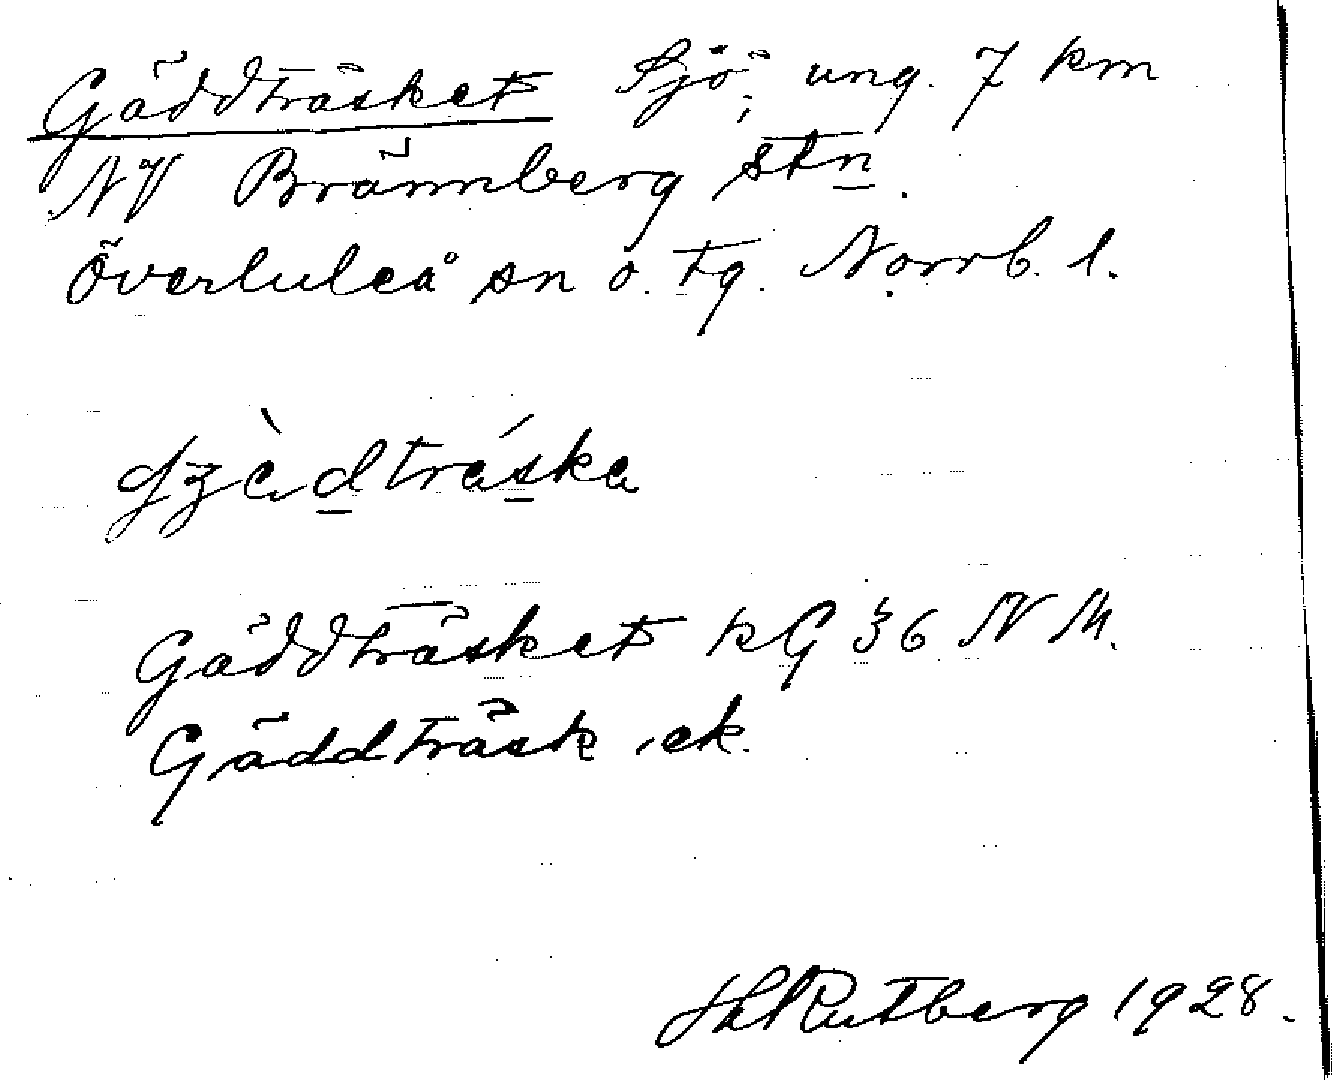 Gäddträsket Sjö, ung. 7 km
NV Brännberg stn.
Överluleå sn o. tg. Norrb. l.
Gäddträsket kG 36 N M.
Gäddträsk ek.
Rutberg 1928.